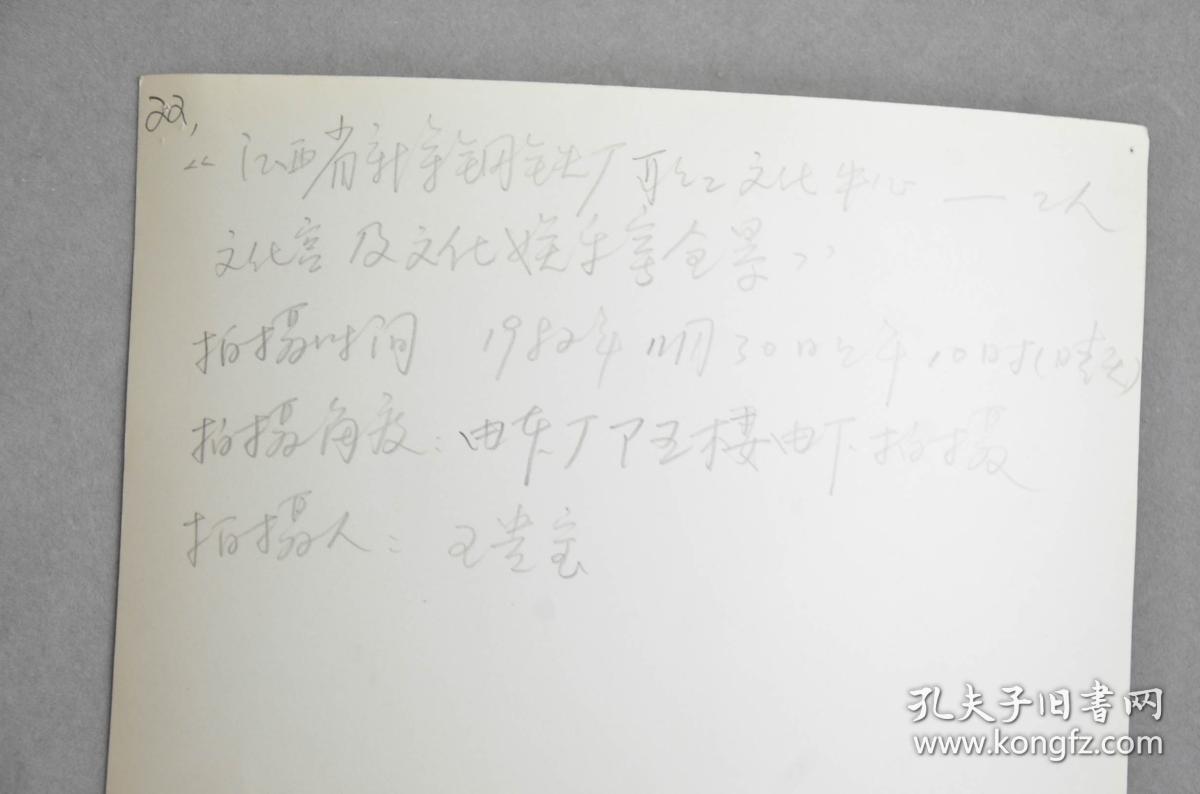 22,
“江西省新余钢铁厂职工文化中心——工人
文化宫及文化娱乐室全景”
拍摄时间 1982年11月30日上午10时(晴天)
拍摄角度:由东厂下五楼由下拍摄
拍摄人:王贵宝
孔夫子旧書网
www.kongfz.com